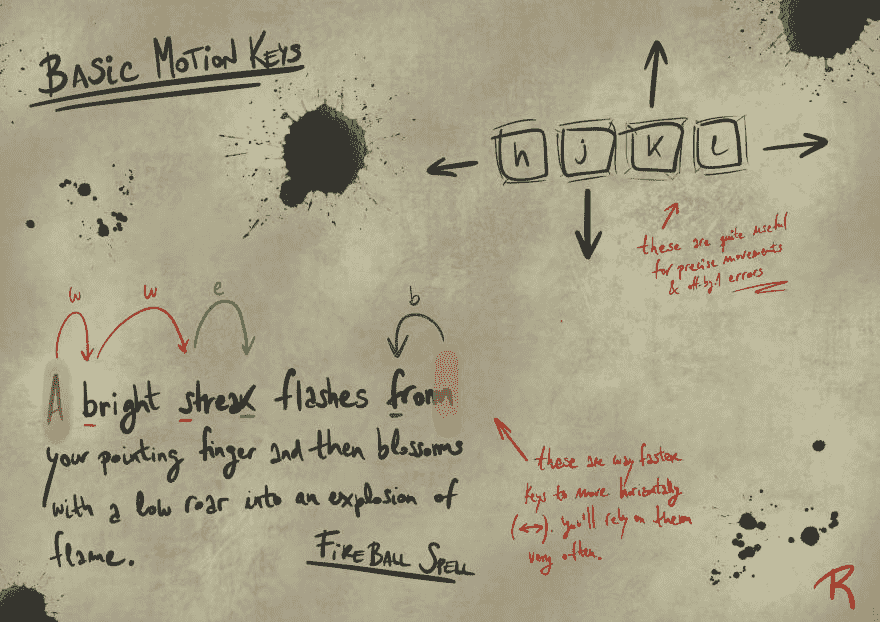 BASIC MOTION KEYS
h j K l
these are quite useful
for precise movements
& off-by-1 errors
w w e b
A bright streak flashes from
your pointing finger and then blossoms
with a low roar into an explosion of
flame.
FIREBALL SPELL
these are way faster
keys to move horizontally
(↔). You'll rely on them
very often.
R